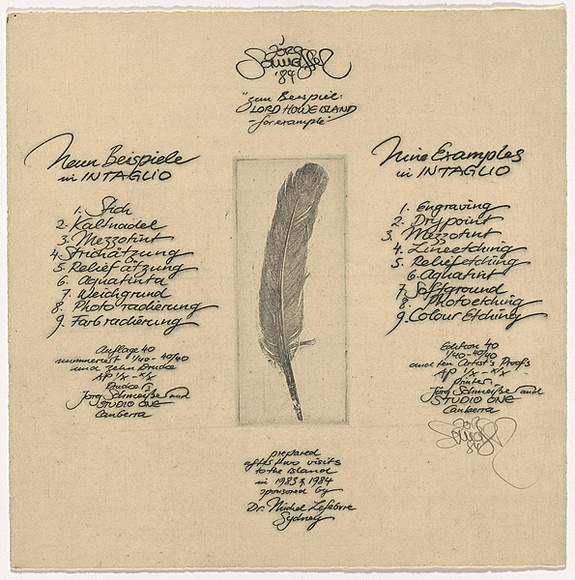 Jörg
Schmeisser
'84
"zum Beispiel:
LORD HOWE ISLAND
- for example"
Neun Beispiele
in INTAGLIO
1. Stich
2. Kaltnadel
3. Mezzotint
4. Strichätzung
5. Reliefätzung
6. Aquatinta
7. Weichgrund
8. Photoradierung
9. Farbradierung
Auflage 40
nummeriert 1/40 - 40/40
und zehn Drucke
AP 1/X - X/X
Drucker
Jörg Schmeißer und
STUDIO ONE
Canberra
Nine Examples
in INTAGLIO
1. Engraving
2. Drypoint
3. Mezzotint
4. Lineetching
5. Reliefetching
6. Aquatint
7. Softground
8. Photoetching
9. Colour Etching
Edition 40
1/40 - 40/40
and ten Artist's Proofs
AP 1/X - X/X
printer
Jörg Schmeißer and
STUDIO ONE
Canberra
84
prepared
after two visits
to the island
in 1983 & 1984
sponsored by
Dr. Michel Lefebvre
Sydney